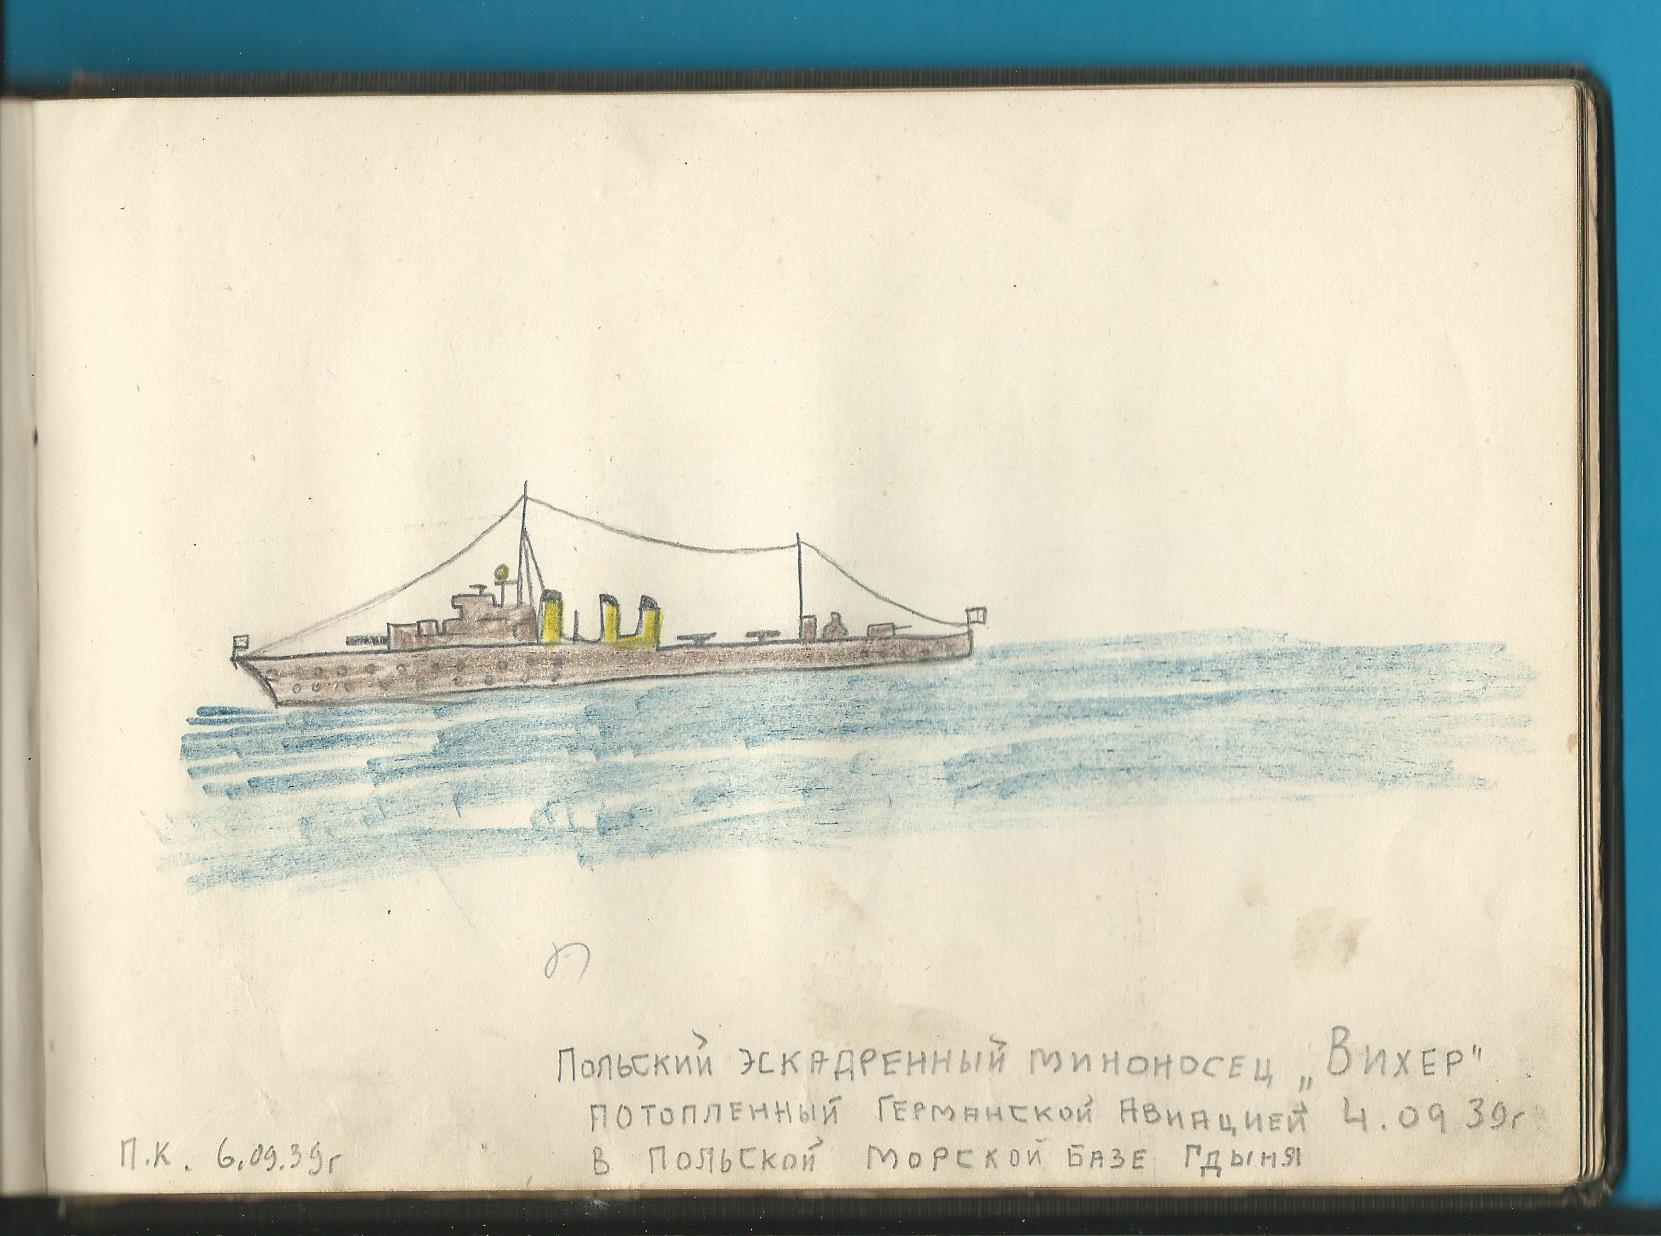 Польский эскадренный миноносец „Вихер"
потопленный Германской Авиацией 4.09 39г
в Польской морской базе Гдыня
П.К. 6.09.39г